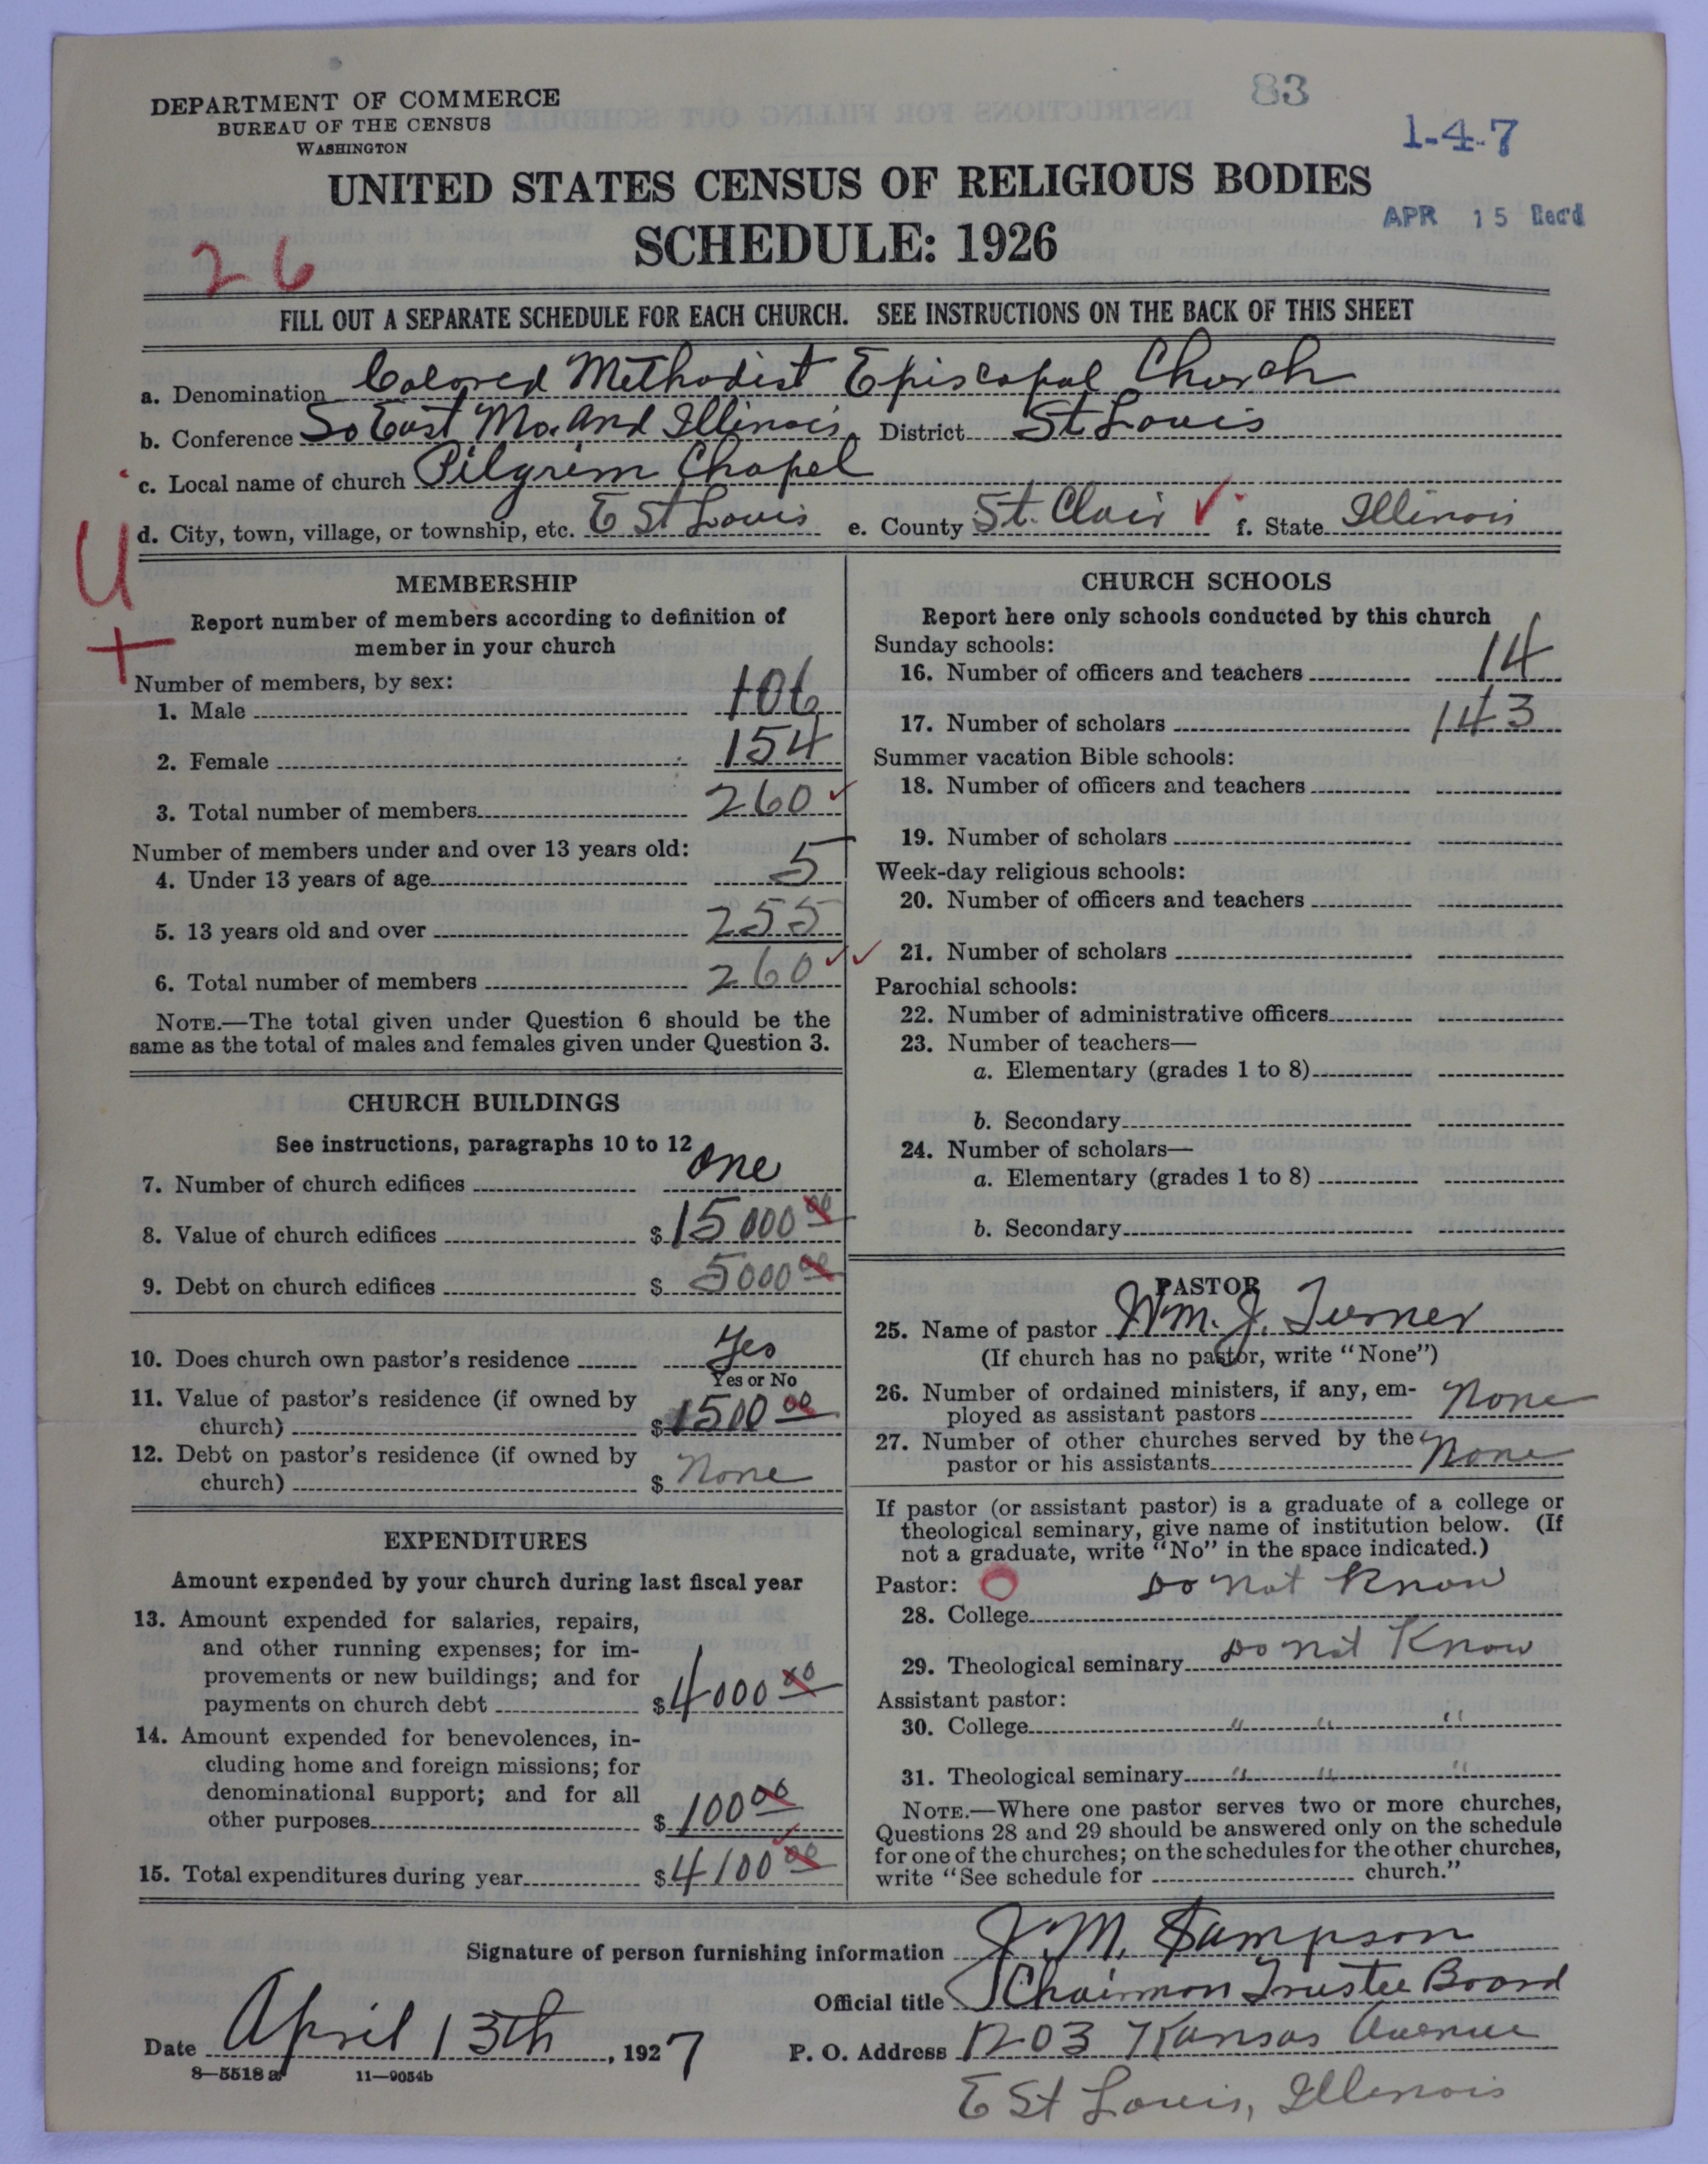 83
1-4-7
DEPARTMENT OF COMMERCE
BUREAU OF THE CENSUS
WASHINGTON
UNITED STATES CENSUS OF RELIGIOUS BODIES
APR 15 Rec'd
SCHEDULE: 1926
26
FILL OUT A SEPARATE SCHEDULE FOR EACH CHURCH. SEE INSTRUCTIONS ON THE BACK OF THIS SHEET
a. Denomination Colored Methodist Episcopal Church
b. Conference So East Mo. and Illinois District St Louis
c. Local name of church Pilgrim Chapel
d. City, town, village, or township, etc. E St Louis e. County St. Clair ✓ f. State Illinois
U
+
MEMBERSHIP
Report number of members according to definition of
member in your church
Number of members, by sex:
1. Male 106
2. Female 154
3. Total number of members 260 ✓
Number of members under and over 13 years old:
4. Under 13 years of age 5
5. 13 years old and over 255
6. Total number of members 260 ✓✓
NOTE.—The total given under Question 6 should be the
same as the total of males and females given under Question 3.
CHURCH BUILDINGS
See instructions, paragraphs 10 to 12
7. Number of church edifices one
8. Value of church edifices $15000 00
9. Debt on church edifices $ 5000 00
10. Does church own pastor's residence Yes
Yes or No
11. Value of pastor's residence (if owned by
church) $1500 00
12. Debt on pastor's residence (if owned by
church) $ None
EXPENDITURES
Amount expended by your church during last fiscal year
13. Amount expended for salaries, repairs,
and other running expenses; for im-
provements or new buildings; and for
payments on church debt $4000 00
14. Amount expended for benevolences, in-
cluding home and foreign missions; for
denominational support; and for all
other purposes $100 00
15. Total expenditures during year $4100 00
CHURCH SCHOOLS
Report here only schools conducted by this church
Sunday schools:
16. Number of officers and teachers 14
17. Number of scholars 143
Summer vacation Bible schools:
18. Number of officers and teachers
19. Number of scholars
Week-day religious schools:
20. Number of officers and teachers
21. Number of scholars
Parochial schools:
22. Number of administrative officers
23. Number of teachers—
a. Elementary (grades 1 to 8)
b. Secondary
24. Number of scholars—
a. Elementary (grades 1 to 8)
b. Secondary
PASTOR
25. Name of pastor Wm. J. Turner
(If church has no pastor, write "None")
26. Number of ordained ministers, if any, em-
ployed as assistant pastors None
27. Number of other churches served by the
pastor or his assistants None
If pastor (or assistant pastor) is a graduate of a college or
theological seminary, give name of institution below. (If
not a graduate, write "No" in the space indicated.)
Pastor: O Do not Know
28. College
29. Theological seminary Do not Know
Assistant pastor:
30. College " " "
31. Theological seminary " " "
NOTE.—Where one pastor serves two or more churches,
Questions 28 and 29 should be answered only on the schedule
for one of the churches; on the schedules for the other churches,
write "See schedule for church."
Signature of person furnishing information J. M. Sampson
Official title Chairman Trustee Board
Date April 13th, 1927 P. O. Address 1203 Kansas Avenue
8—5518 a 11—9054b
E St Louis, Illinois